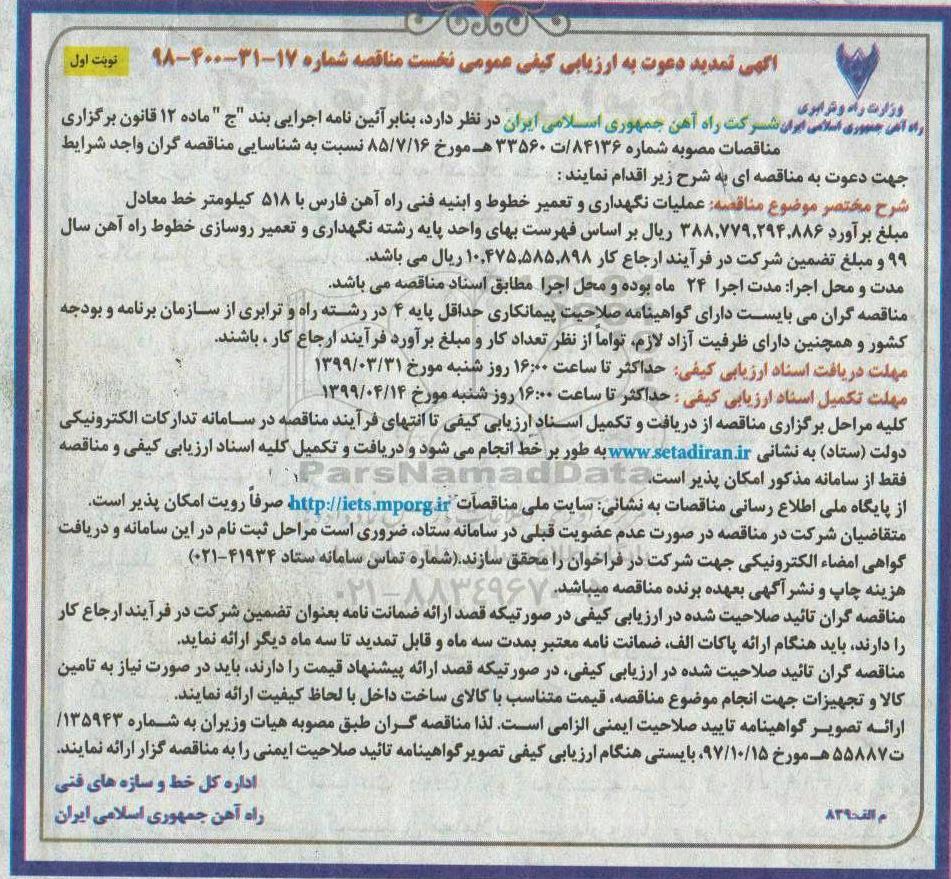 آگهی تمدید دعوت به ارزیابی کیفی عمومی نخست مناقصه شماره ۱۷-۳۱-۴۰۰-۹۸
نوبت اول
وزارت راه و ترابری
راه آهن جمهوری اسلامی ایران
شرکت راه آهن جمهوری اسلامی ایران در نظر دارد، بنابر آئین نامه اجرایی بند "ج" ماده ۱۲ قانون برگزاری
مناقصات مصوبه شماره ۸۴۱۳۶/ت ۳۳۵۶۰ هـ مورخ ۸۵/۷/۱۶ نسبت به شناسایی مناقصه گران واجد شرایط
جهت دعوت به مناقصه ای به شرح زیر اقدام نمایند :
شرح مختصر موضوع مناقصه: عملیات نگهداری و تعمیر خطوط و ابنیه فنی راه آهن فارس با ۵۱۸ کیلومتر خط معادل
مبلغ برآورد ۳۸۸,۷۷۹,۲۹۴,۸۸۶ ریال بر اساس فهرست بهای واحد پایه رشته نگهداری و تعمیر روسازی خطوط راه آهن سال
۹۹ و مبلغ تضمین شرکت در فرآیند ارجاع کار ۱۰,۴۷۵,۵۸۵,۸۹۸ ریال می باشد.
مدت و محل اجرا: مدت اجرا ۲۴ ماه بوده و محل اجرا مطابق اسناد مناقصه می باشد.
مناقصه گران می بایست دارای گواهینامه صلاحیت پیمانکاری حداقل پایه ۴ در رشته راه و ترابری از سازمان برنامه و بودجه
کشور و همچنین دارای ظرفیت آزاد لازم، تواماً از نظر تعداد کار و مبلغ برآورد فرآیند ارجاع کار ، باشند.
مهلت دریافت اسناد ارزیابی کیفی: حداکثر تا ساعت ۱۶:۰۰ روز شنبه مورخ ۱۳۹۹/۰۳/۳۱
مهلت تکمیل اسناد ارزیابی کیفی : حداکثر تا ساعت ۱۶:۰۰ روز شنبه مورخ ۱۳۹۹/۰۴/۱۴
کلیه مراحل برگزاری مناقصه از دریافت و تکمیل اسناد ارزیابی کیفی تا انتهای فرآیند مناقصه در سامانه تدارکات الکترونیکی
دولت (ستاد) به نشانی www.setadiran.ir به طور بر خط انجام می شود و دریافت و تکمیل کلیه اسناد ارزیابی کیفی و مناقصه
فقط از سامانه مذکور امکان پذیر است.
ParsNamadData
از پایگاه ملی اطلاع رسانی مناقصات به نشانی: سایت ملی مناقصات http://iets.mporg.ir صرفاً رویت امکان پذیر است.
متقاضیان شرکت در مناقصه در صورت عدم عضویت قبلی در سامانه ستاد، ضروری است مراحل ثبت نام در این سامانه و دریافت
گواهی امضاء الکترونیکی جهت شرکت در فراخوان را محقق سازند.(شماره تماس سامانه ستاد ۴۱۹۳۴-۰۲۱)
هزینه چاپ و نشر آگهی بعهده برنده مناقصه میباشد.
مناقصه گران تائید صلاحیت شده در ارزیابی کیفی در صورتیکه قصد ارائه ضمانت نامه بعنوان تضمین شرکت در فرآیند ارجاع کار
را دارند، باید هنگام ارائه پاکات الف، ضمانت نامه معتبر بمدت سه ماه و قابل تمدید تا سه ماه دیگر ارائه نماید.
مناقصه گران تائید صلاحیت شده در ارزیابی کیفی، در صورتیکه قصد ارائه پیشنهاد قیمت را دارند، باید در صورت نیاز به تامین
کالا و تجهیزات جهت انجام موضوع مناقصه، قیمت متناسب با کالای ساخت داخل با لحاظ کیفیت ارائه نمایند.
ارائه تصویر گواهینامه تایید صلاحیت ایمنی الزامی است. لذا مناقصه گران طبق مصوبه هیات وزیران به شماره ۱۳۵۹۴۳/
ت۵۵۸۸۷ هـ مورخ ۹۷/۱۰/۱۵، بایستی هنگام ارزیابی کیفی تصویر گواهینامه تائید صلاحیت ایمنی را به مناقصه گزار ارائه نمایند.
اداره کل خط و سازه های فنی
راه آهن جمهوری اسلامی ایران
م الف:۸۳۹